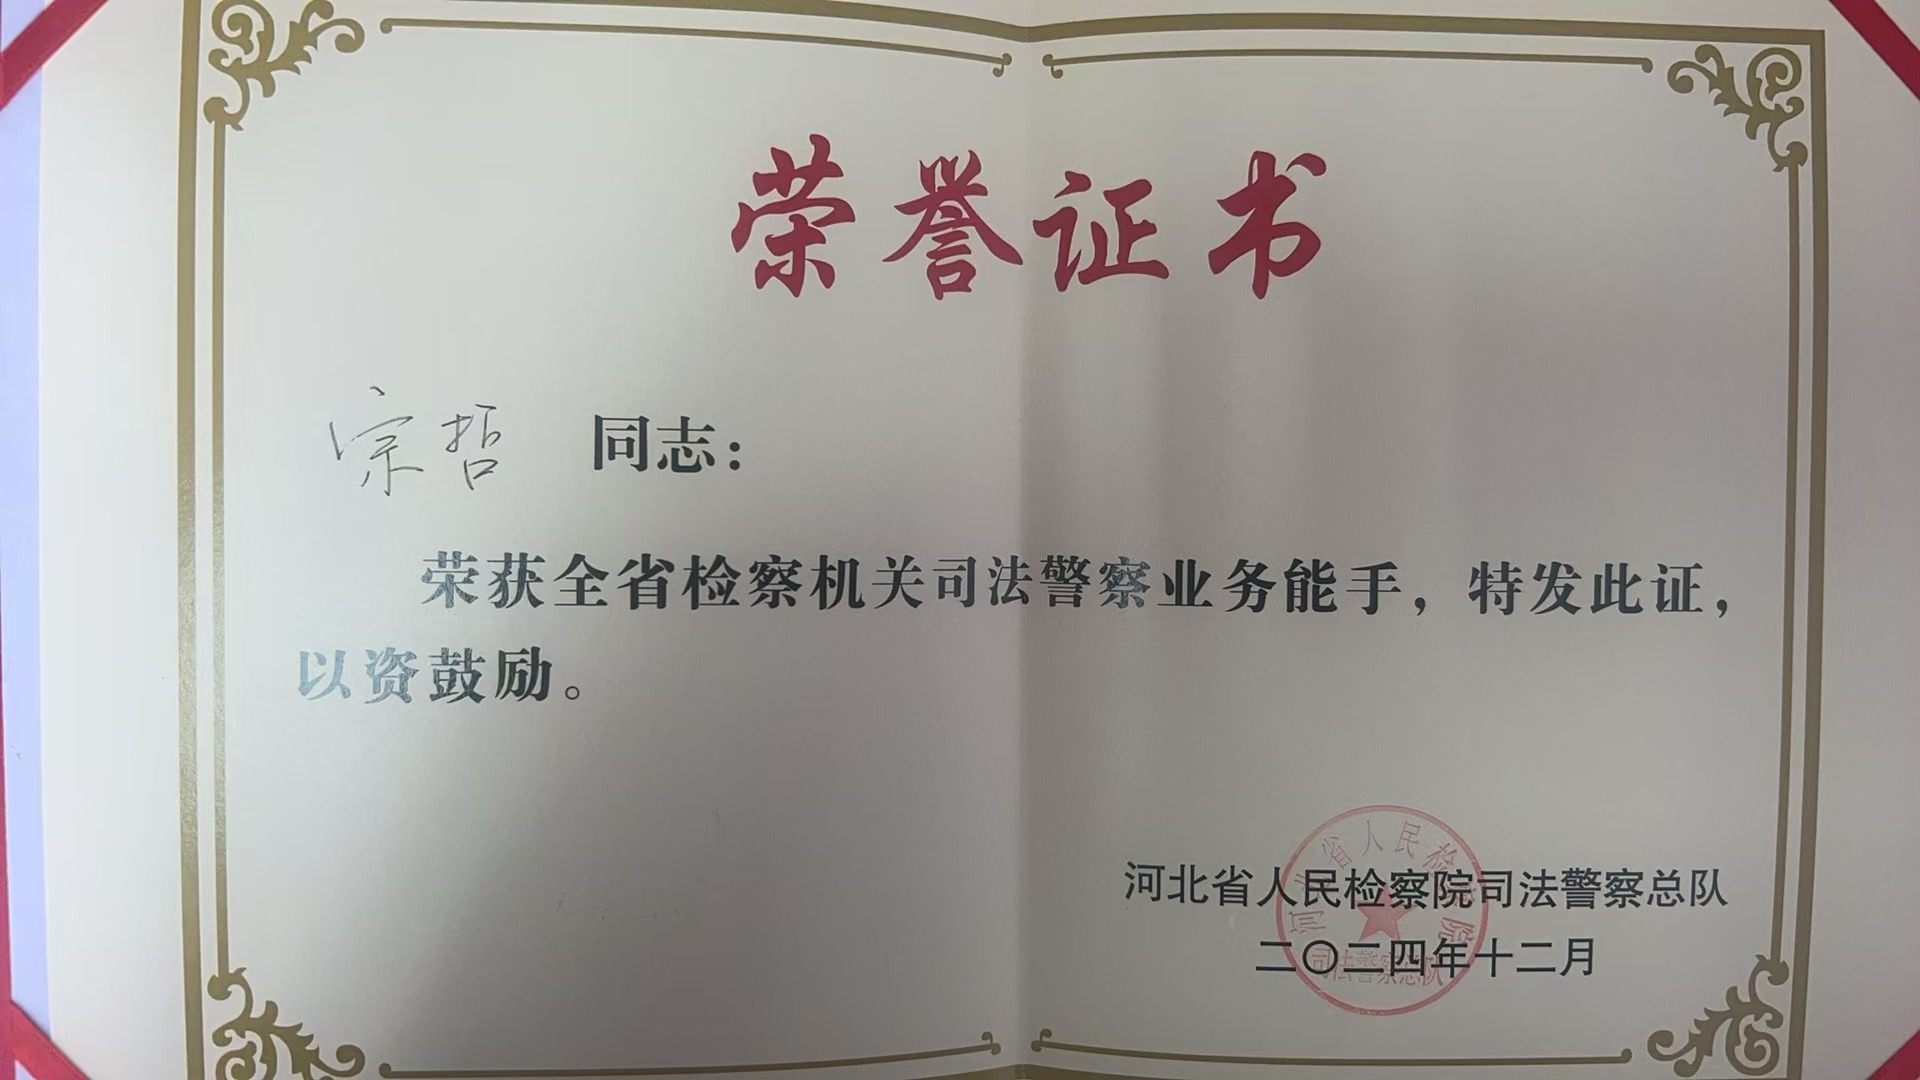 荣誉证书
宗哲 同志：
荣获全省检察机关司法警察业务能手，特发此证，
以资鼓励。
河北省人民检察院司法警察总队
二〇二四年十二月
河北省人民检察院
司法警察总队